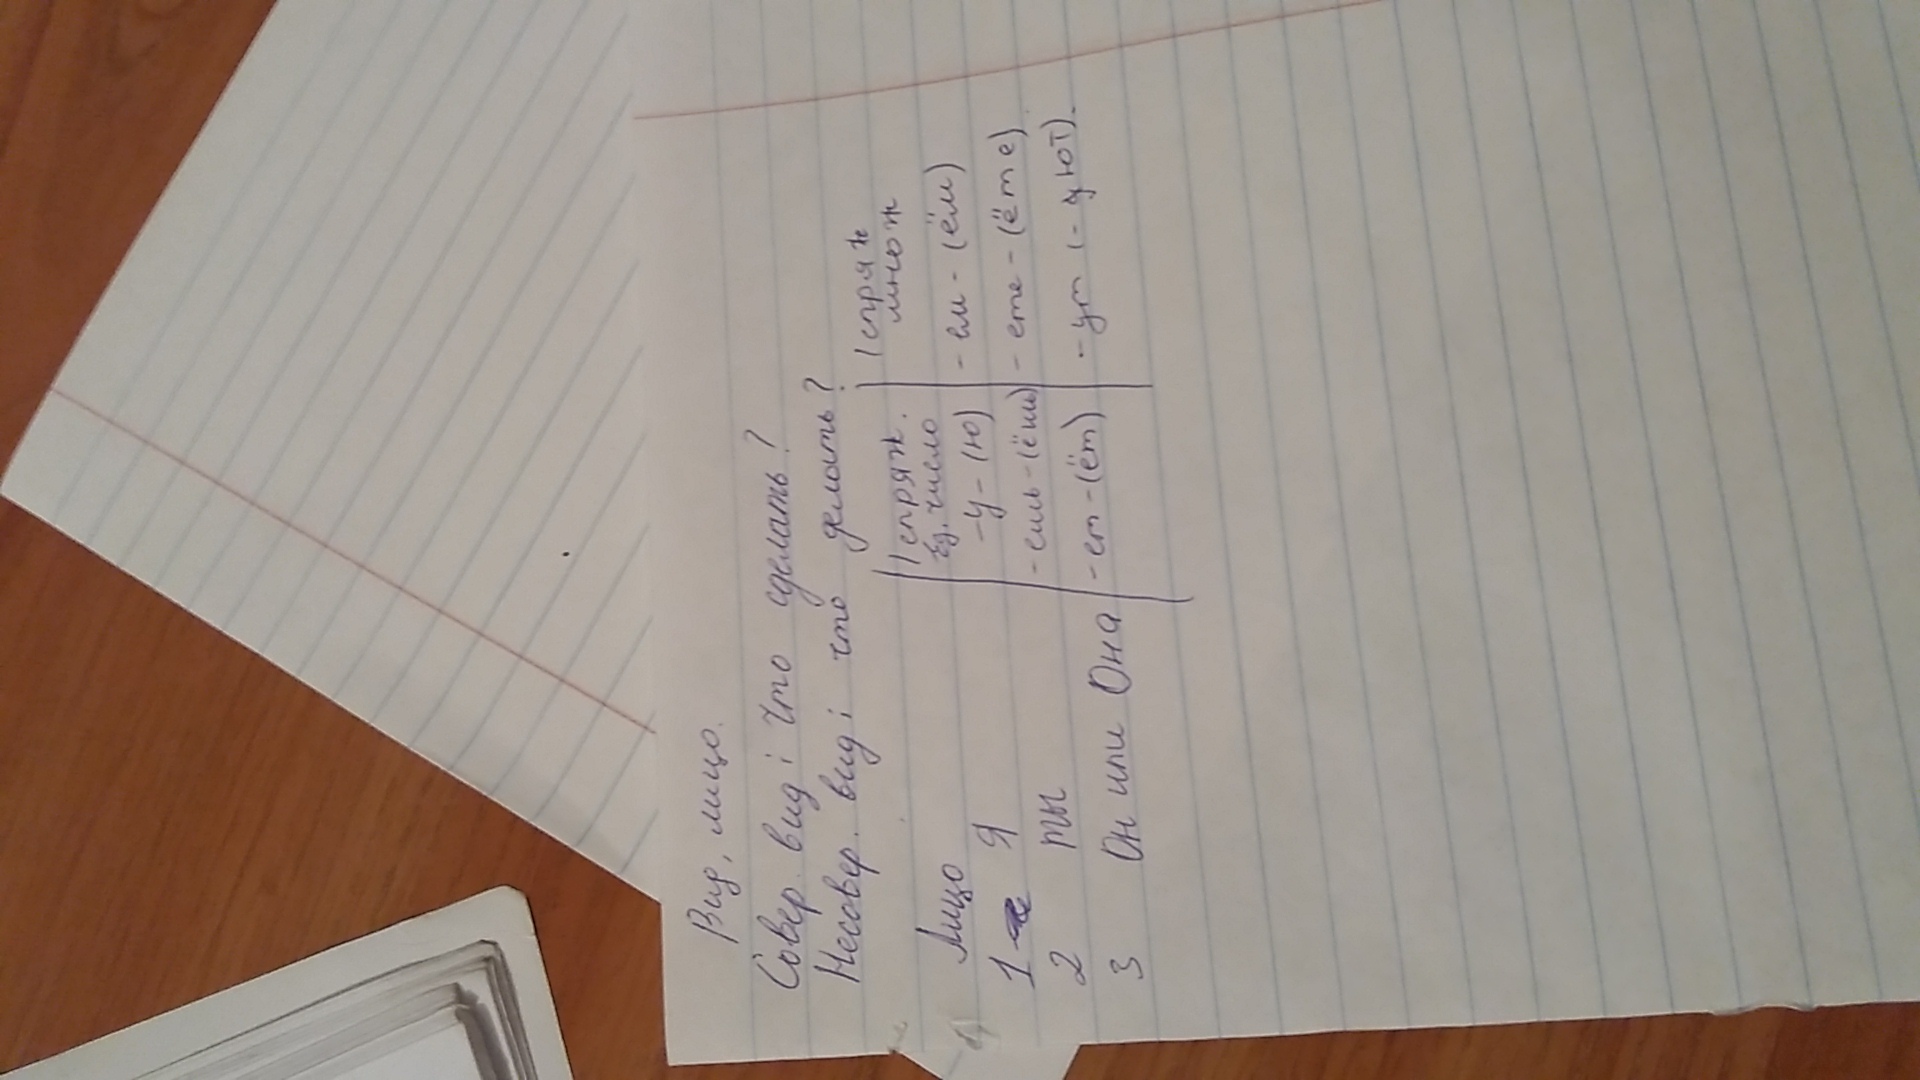 Вид, лицо.
Совер. вид: Что сделать?
Несовер. вид: что делать?
I спряж. I спряж
Лицо Ед. число множ
1 Я -у-(ю) -ем-(ём)
2 ты -ешь-(ёшь) -ете-(ёте)
3 Он или Она -ет-(ёт) -ут (-ют).